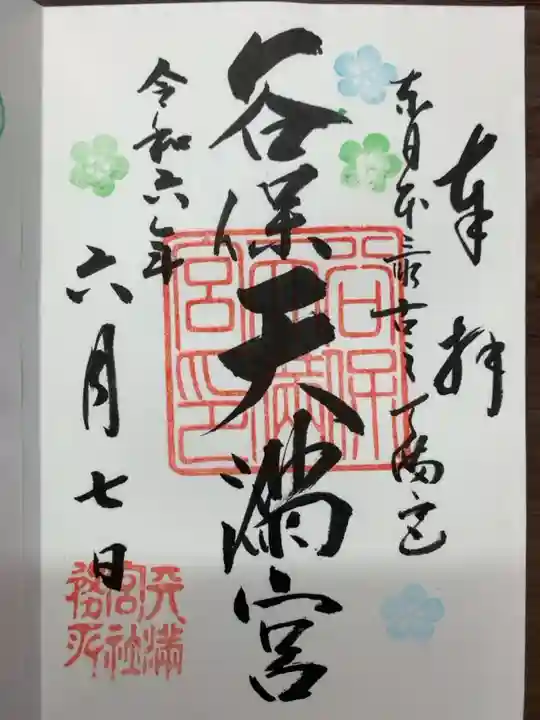 奉拝
東日本最古之天満宮
谷保天満宮
令和六年
六月七日
谷保天満宮印
天満宮社務所